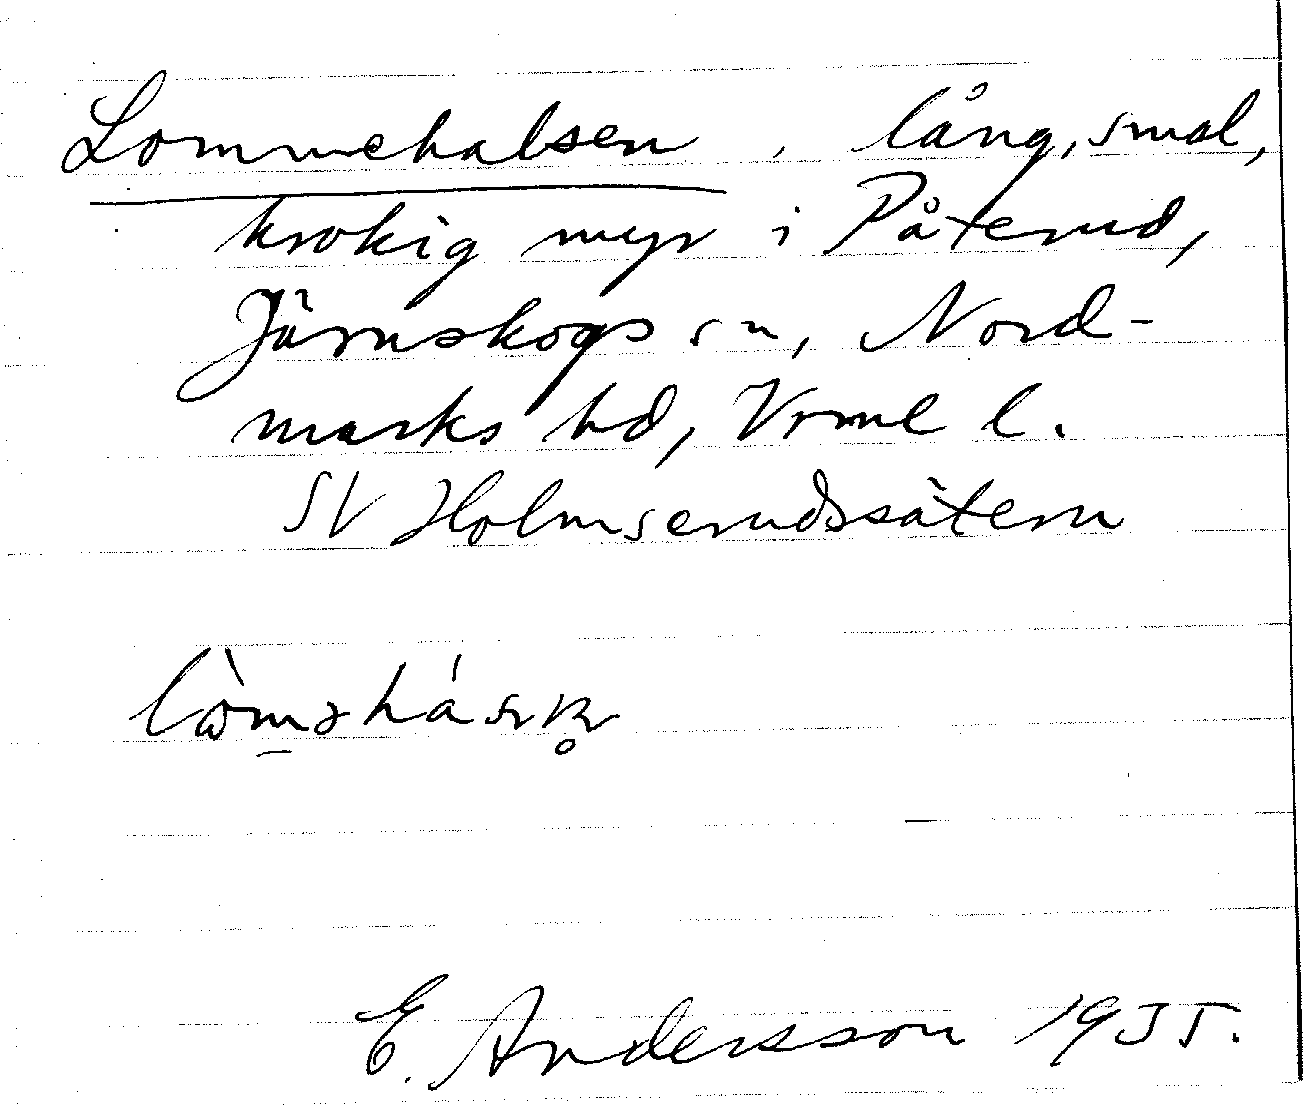 Lommehalsen, lång, smal,
krokig myr i Påterud,
Järnskogs sn, Nord-
marks hd, Vrml l.
SV Holmserudssätern
E. Andersson 1955.